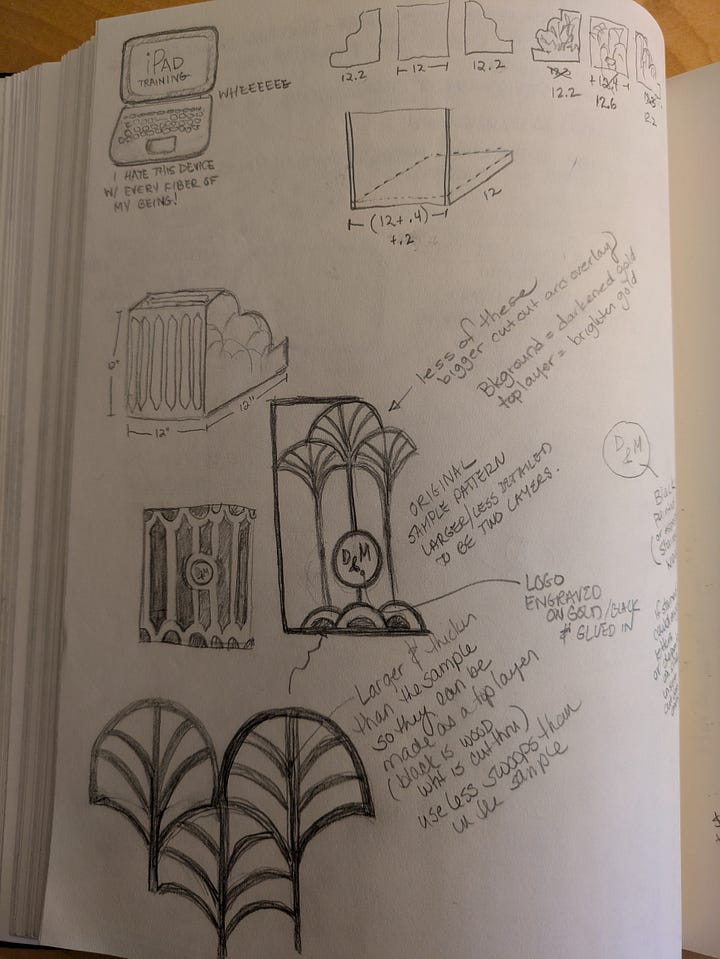 iPAD
TRAINING
WHEEEEEE
I HATE THIS DEVICE
W/ EVERY FIBER OF
MY BEING!
12.2
12
12.2
12.2
12.4
12.6
12
(12+.4)
+.2
less of these
bigger cutout arc overlay
Bkground = darkened gold
top layer = brighten gold
12"
12"
ORIGINAL
SAMPLE PATTERN
LARGER/LESS DETAILED
TO BE TWO LAYERS.
D&M
D&M
D&M
LOGO
ENGRAVED
ON GOLD/BLACK
& GLUED IN
Larger & thicker
than the sample
so they can be
made as a top layer
(black is wood
whit is cut thru)
use less swoops than
in the sample